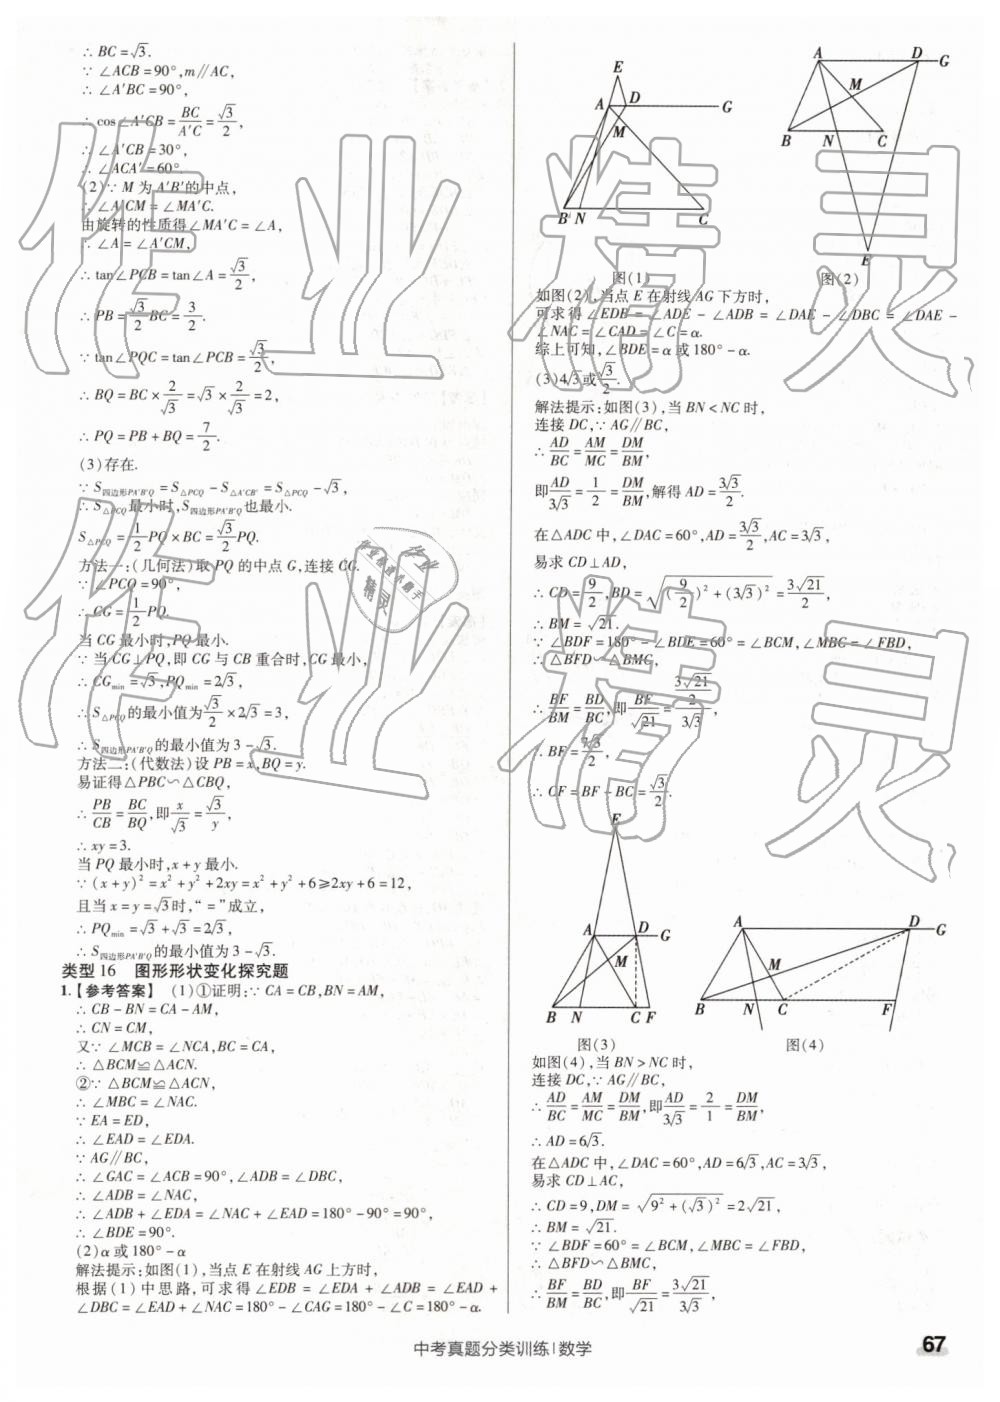 ∴ BC = √3.
∵ ∠ACB = 90°, m∥AC,
∴ ∠A′BC = 90°,
∴ cos∠A′CB = BC/A′C = √3/2,
∴ ∠A′CB = 30°,
∴ ∠ACA′ = 60°.
(2)∵ M 为 A′B′的中点,
∴ ∠A′CM = ∠MA′C.
由旋转的性质得∠MA′C = ∠A,
∴ ∠A = ∠A′CM,
∴ tan∠PCB = tan∠A = √3/2,
∴ PB = √3/2 BC = 3/2.
∵ tan∠PQC = tan∠PCB = √3/2,
∴ BQ = BC × 2/√3 = √3 × 2/√3 = 2,
∴ PQ = PB + BQ = 7/2.
(3)存在.
∵ S四边形PA′B′Q = S△PCQ − S△A′CB′ = S△PCQ − √3,
∴ S△PCQ最小时, S四边形PA′B′Q也最小.
S△PCQ = 1/2 PQ × BC = √3/2 PQ.
方法一:(几何法)取 PQ 的中点 G,连接 CG.
∵ ∠PCQ = 90°,
∴ CG = 1/2 PQ.
当 CG 最小时, PQ 最小.
∵ 当 CG⊥PQ,即 CG 与 CB 重合时, CG 最小,
∴ CGmin = √3, PQmin = 2√3,
∴ S△PCQ的最小值为 √3/2 × 2√3 = 3,
∴ S四边形PA′B′Q的最小值为 3 − √3.
方法二:(代数法)设 PB = x, BQ = y.
易证得△PBC∽△CBQ,
∴ PB/CB = BC/BQ,即 x/√3 = √3/y,
∴ xy = 3.
当 PQ 最小时, x + y 最小.
∵ (x + y)² = x² + y² + 2xy = x² + y² + 6 ≥ 2xy + 6 = 12,
且当 x = y = √3时,“ = ”成立,
∴ PQmin = √3 + √3 = 2√3,
∴ S四边形PA′B′Q的最小值为 3 − √3.
类型 16 图形形状变化探究题
1.【参考答案】 (1)①证明:∵ CA = CB, BN = AM,
∴ CB − BN = CA − AM,
∴ CN = CM,
又∵ ∠MCB = ∠NCA, BC = CA,
∴ △BCM≌△ACN.
②∵ △BCM≌△ACN,
∴ ∠MBC = ∠NAC.
∵ EA = ED,
∴ ∠EAD = ∠EDA.
∵ AG∥BC,
∴ ∠GAC = ∠ACB = 90°, ∠ADB = ∠DBC,
∴ ∠ADB = ∠NAC,
∴ ∠ADB + ∠EDA = ∠NAC + ∠EAD = 180° − 90° = 90°,
∴ ∠BDE = 90°.
(2)α 或 180° − α
解法提示:如图(1),当点 E 在射线 AG 上方时,
根据(1)中思路,可求得 ∠EDB = ∠EDA + ∠ADB = ∠EAD +
∠DBC = ∠EAD + ∠NAC = 180° − ∠CAG = 180° − ∠C = 180° − α.
E
A D G
M
B N C
图(1)
A D G
M
B N C
E
图(2)
如图(2),当点 E 在射线 AG 下方时,
可求得 ∠EDB = ∠ADE − ∠ADB = ∠DAE − ∠DBC = ∠DAE −
∠NAC = ∠CAD = ∠C = α.
综上可知, ∠BDE = α 或 180° − α.
(3)4√3或√3/2.
解法提示:如图(3),当 BN < NC 时,
连接 DC,∵ AG∥BC,
∴ AD/BC = AM/MC = DM/BM,
即 AD/3√3 = 1/2 = DM/BM,解得 AD = 3√3/2.
在△ADC 中, ∠DAC = 60°, AD = 3√3/2, AC = 3√3,
易求 CD⊥AD,
∴ CD = 9/2, BD = √((9/2)² + (3√3)²) = 3√21/2,
∴ BM = √21.
∵ ∠BDF = 180° − ∠BDE = 60° = ∠BCM, ∠MBC = ∠FBD,
∴ △BFD∽△BMC,
∴ BF/BM = BD/BC,即 BF/√21 = (3√21/2)/3√3,
∴ BF = 7√3/2,
∴ CF = BF − BC = √3/2.
E
A D G
M
B N C F
图(3)
A D G
M
B N C F
图(4)
如图(4),当 BN > NC 时,
连接 DC,∵ AG∥BC,
∴ AD/BC = AM/MC = DM/BM,即 AD/3√3 = 2/1 = DM/BM,
∴ AD = 6√3.
在△ADC 中, ∠DAC = 60°, AD = 6√3, AC = 3√3,
易求 CD⊥AC,
∴ CD = 9, DM = √(9² + (√3)²) = 2√21,
∴ BM = √21.
∵ ∠BDF = 60° = ∠BCM, ∠MBC = ∠FBD,
∴ △BFD∽△BMC,
∴ BF/BM = BD/BC,即 BF/√21 = 3√21/3√3,
中考真题分类训练|数学
67
作业精灵
作业精灵